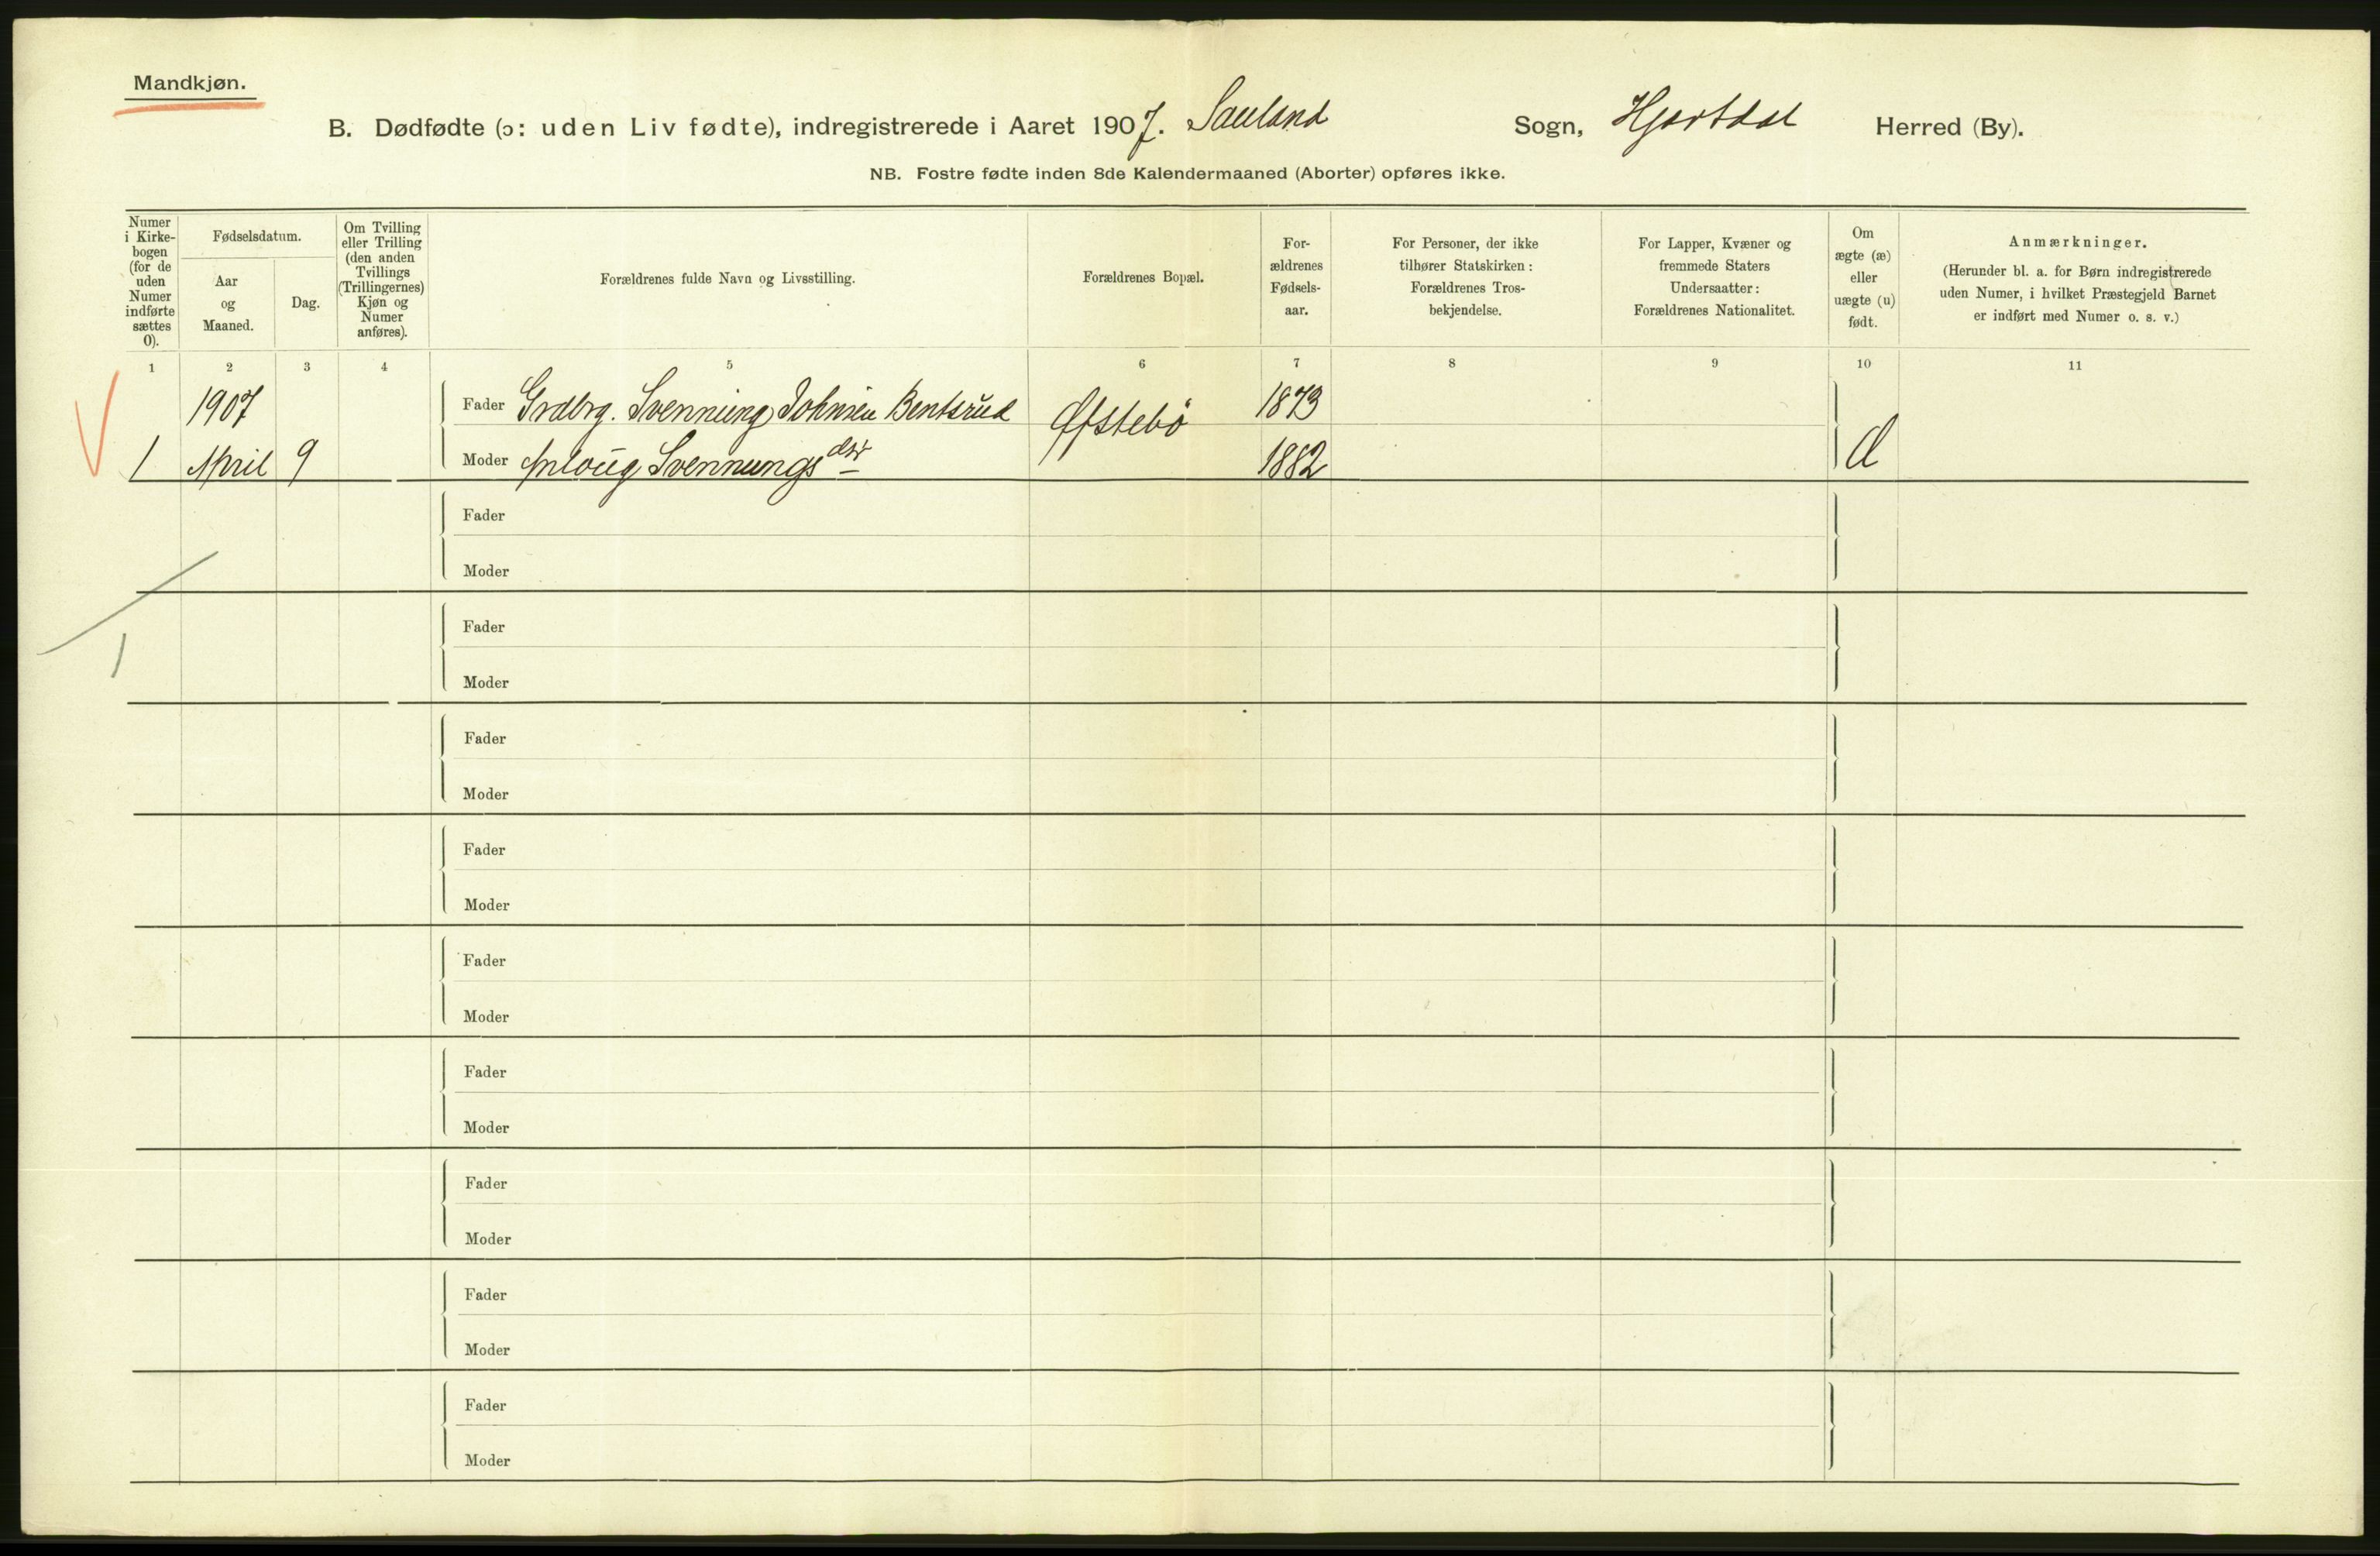 Mandkjøn.
B. Dødfødte (ɔ: uden Liv fødte), indregistrerede i Aaret 1907. Sauland Sogn, Hjartdal Herred (By).
NB. Fostre fødte inden 8de Kalendermaaned (Aborter) opføres ikke.
Numer
i Kirke-
bogen
(for de
uden
Numer
indførte
sættes
0).
Fødselsdatum.
Aar
og
Maaned.
Dag.
Om Tvilling
eller Trilling
(den anden
Tvillings
(Trillingernes)
Kjøn og
Numer
anføres).
Forældrenes fulde Navn og Livsstilling.
Forældrenes Bopæl.
For-
ældrenes
Fødsels-
aar.
For Personer, der ikke
tilhører Statskirken:
Forældrenes Tros-
bekjendelse.
For Lapper, Kvæner og
fremmede Staters
Undersaatter:
Forældrenes Nationalitet.
Om
ægte (æ)
eller
uægte (u)
født.
Anmærkninger.
(Herunder bl. a. for Børn indregistrerede
uden Numer, i hvilket Præstegjeld Barnet
er indført med Numer o. s. v.)
1 2 3 4 5 6 7 8 9 10 11
1907 Fader Grdbrg. Svennung Johnsen Bentsrud Øfstebö 1873
1 April 9 Moder Svennungsdtr 1882
Fader
Moder
Fader
1
Moder
Fader
Moder
Fader
Moder
Fader
Moder
Fader
Moder
Fader
Moder
Fader
Moder
Fader
Moder